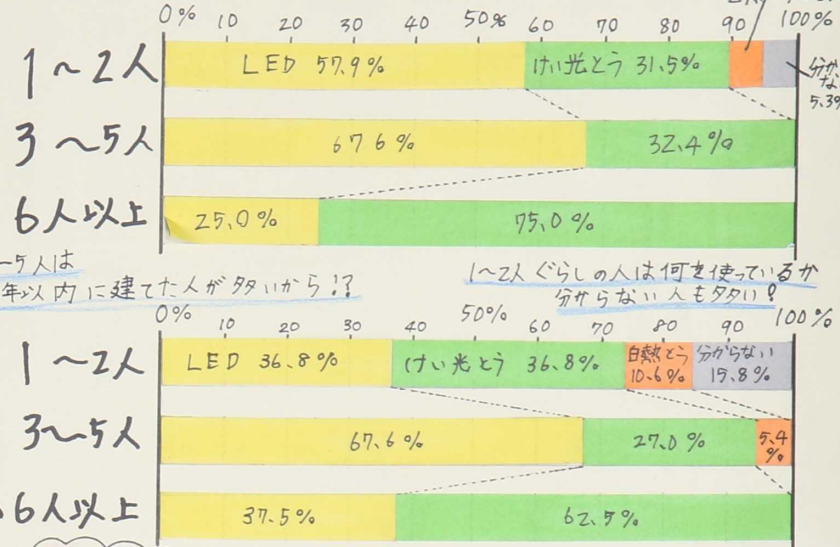 0% 10 20 30 40 50% 60 70 80 90 100%
1～2人 LED 57.9% けい光とう 31.5%
分か
な
5.3%
3～5人 67.6% 32.4%
6人以上 25.0% 75.0%
～5人は
年以内に建てた人が多いから!?
1～2人ぐらしの人は何を使っているか
分からない人も多い!
0% 10 20 30 40 50% 60 70 80 90 100%
1～2人 LED 36.8% けい光とう 36.8% 白熱とう 10.6% 分からない 15.8%
3～5人 67.6% 27.0% 5.4%
6人以上 37.5% 62.5%